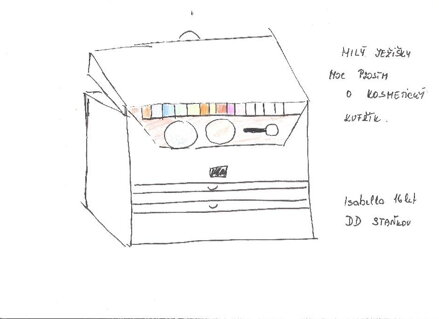 MILÝ JEŽÍŠKU
MOC PROSÍM
O KOSMETICKÝ
KUFŘÍK.
Isabella 16 let
DD STAŇKOV